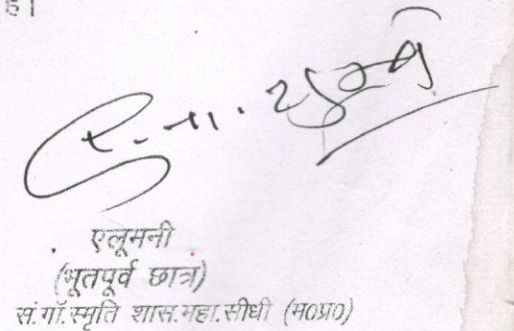 है।
एलूमनी
(भूतपूर्व छात्र)
सं.गाॅ.स्मृति शास.महा.सीधी (म०प्र०)